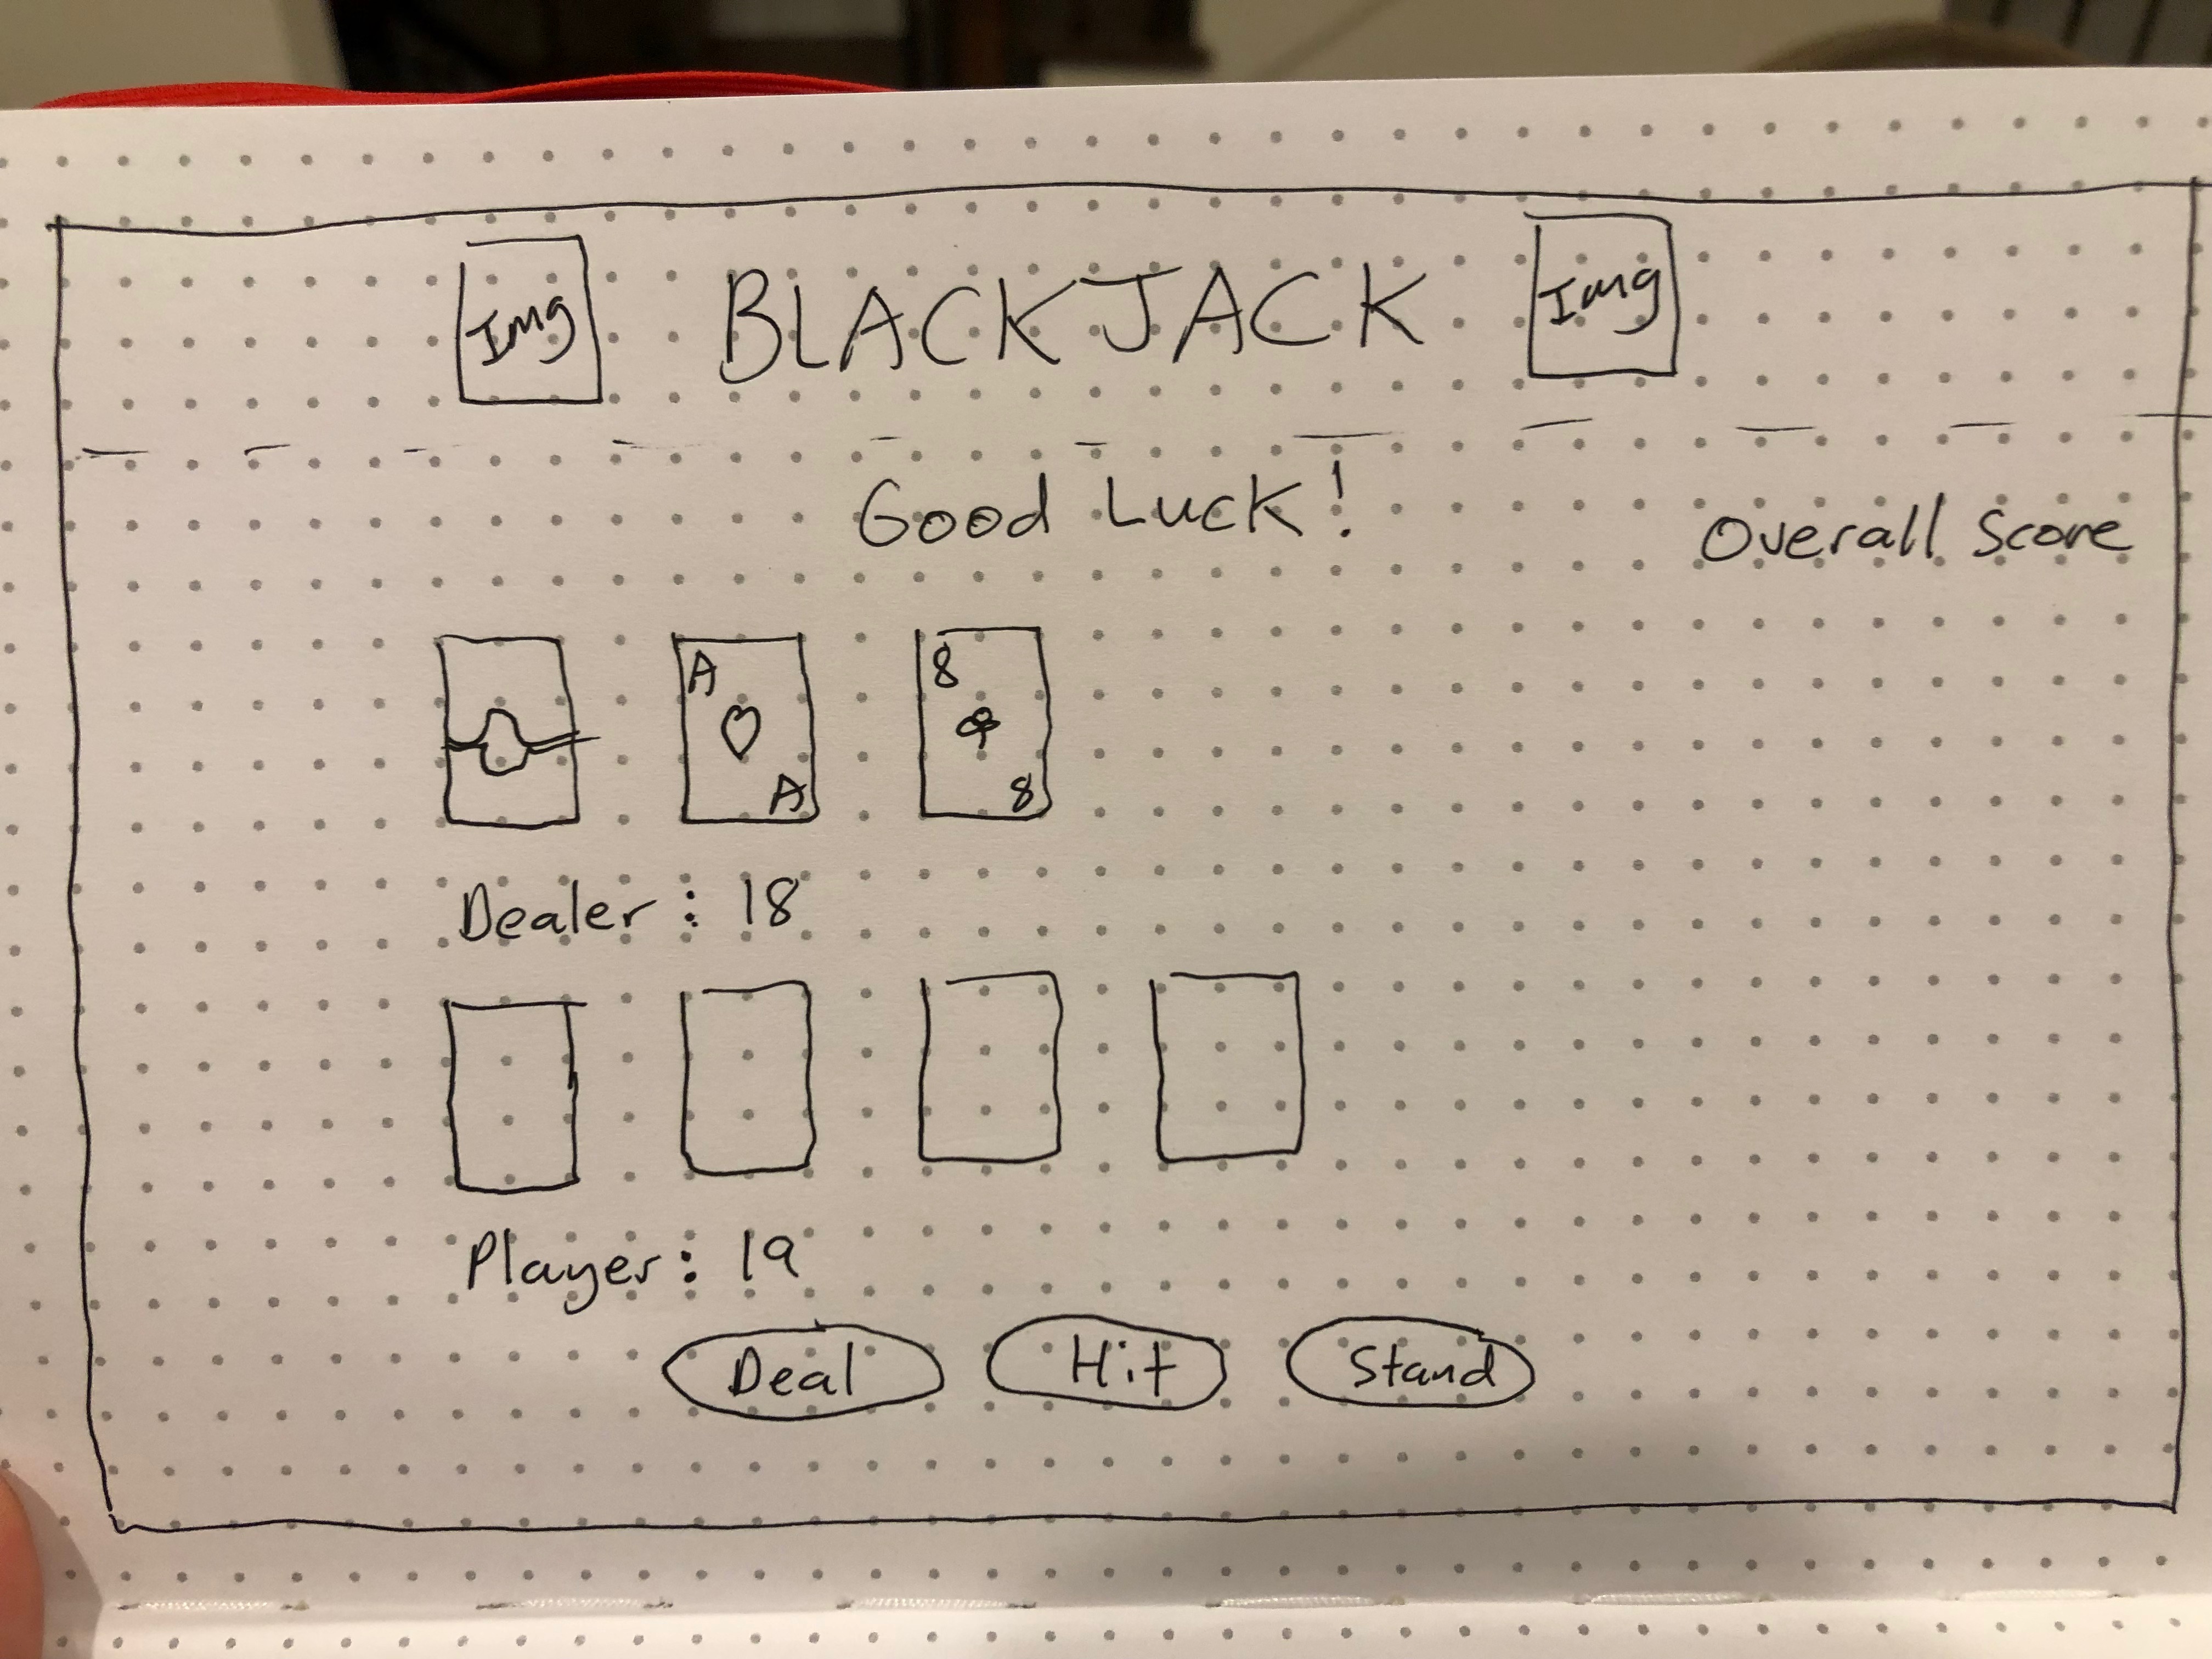 Img BLACKJACK Img
Good Luck!
Overall Score
A 8
A 8
Dealer: 18
Player: 19
Deal Hit Stand